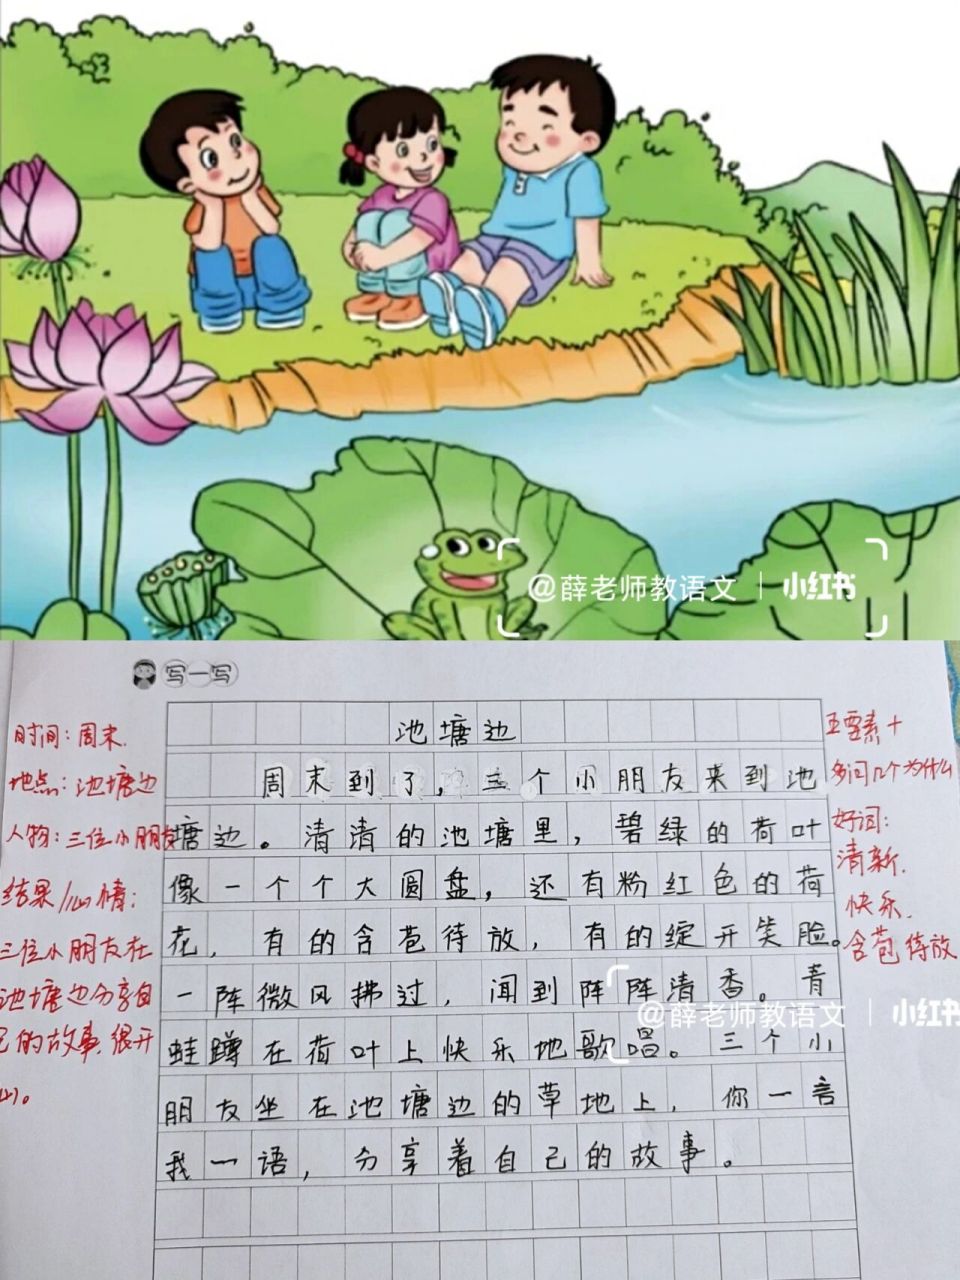 @薛老师教语文 | 小红书
写一写
池塘边
周末到了，三个小朋友来到池
塘边。清清的池塘里，碧绿的荷叶
像一个个大圆盘，还有粉红色的荷
花，有的含苞待放，有的绽开笑脸。
一阵微风拂过，闻到阵阵清香。青
蛙蹲在荷叶上快乐地歌唱。三个小
朋友坐在池塘边的草地上，你一言
我一语，分享着自己的故事。
时间：周末
地点：池塘边
人物：三位小朋友
结果/心情：
三位小朋友在
池塘边分享自
己的故事，很开
心。
五要素+
多问几个为什么
好词：
清新、
快乐、
含苞待放
@薛老师教语文 | 小红书